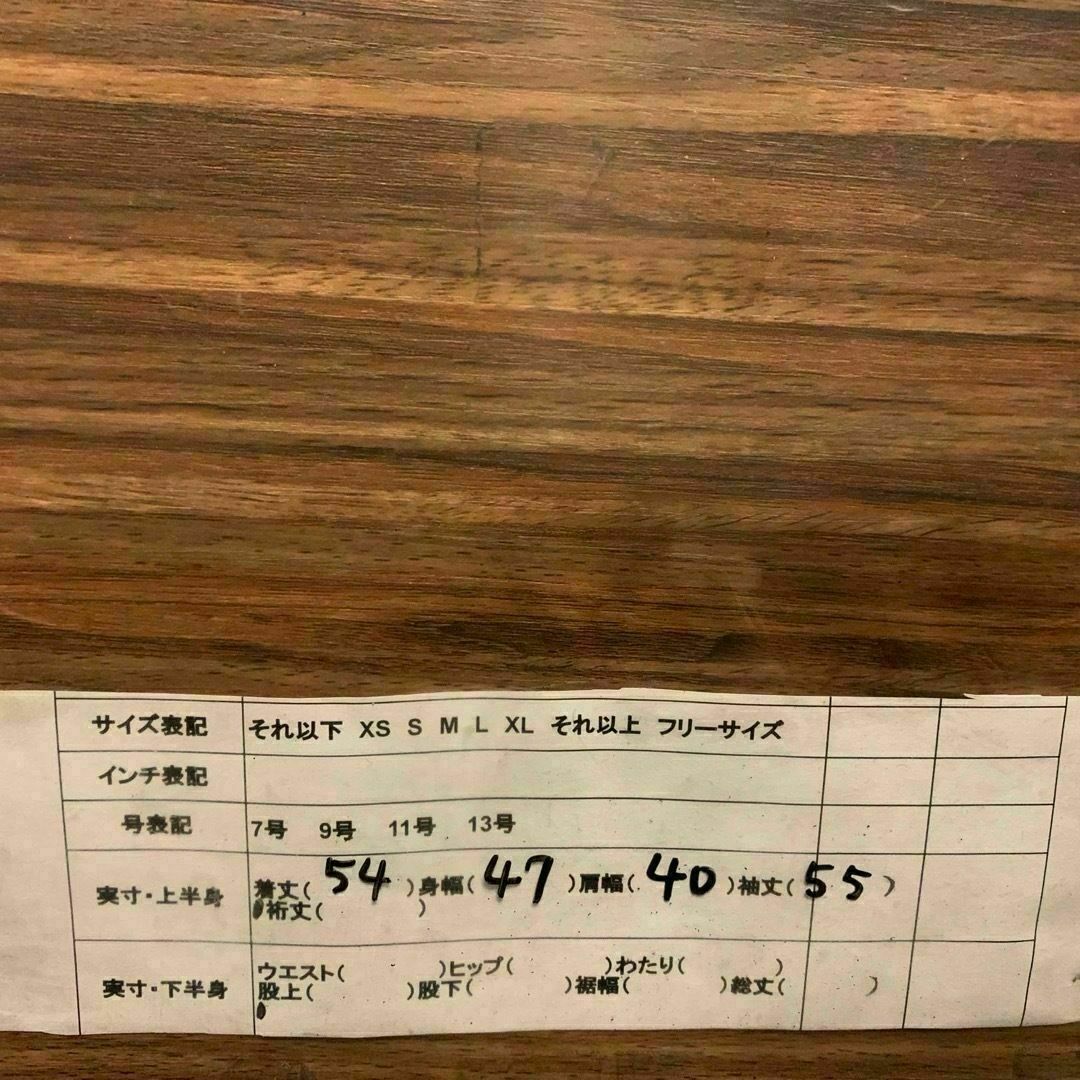 サイズ表記 それ以下 XS S M L XL それ以上 フリーサイズ
インチ表記
号表記 7号 9号 11号 13号
実寸・上半身 着丈( 54 )身幅( 47 )肩幅( 40 )袖丈( 55 )
裄丈( )
実寸・下半身 ウエスト( )ヒップ( )わたり( )
股上( )股下( )裾幅( )総丈( )